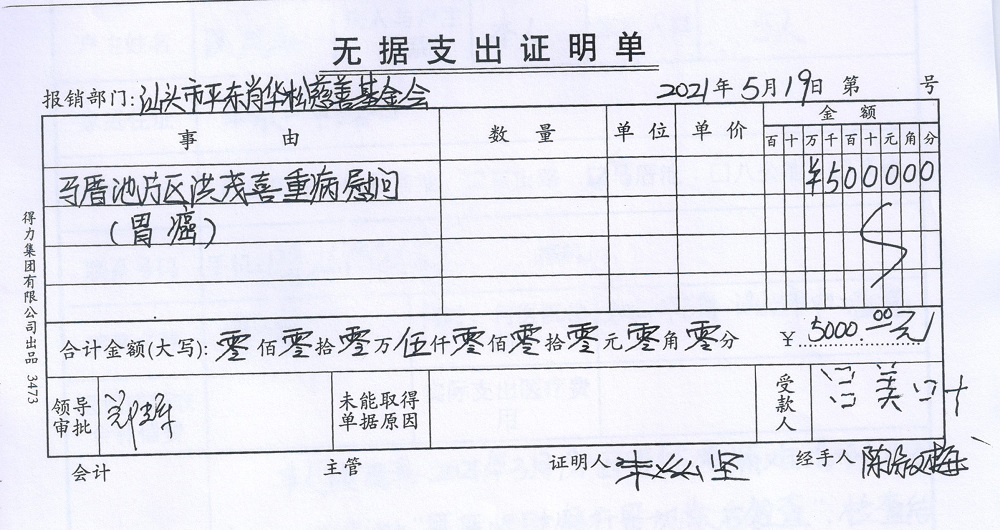 无据支出证明单
报销部门:汕头市平东肖华松慈善基金会 2021年5月19日 第 号
事 由 数 量 单 位 单 价 金 额
百 十 万 千 百 十 元 角 分
马厝池片区洪茂喜重病慰问 ¥500000
(胃癌)
合计金额(大写):零佰零拾零万伍仟零佰零拾零元零角零分 ¥.5000.00元
领导审批 未能取得单据原因 受款人
会计 主管 证明人 经手人
得力集团有限公司出品 3473